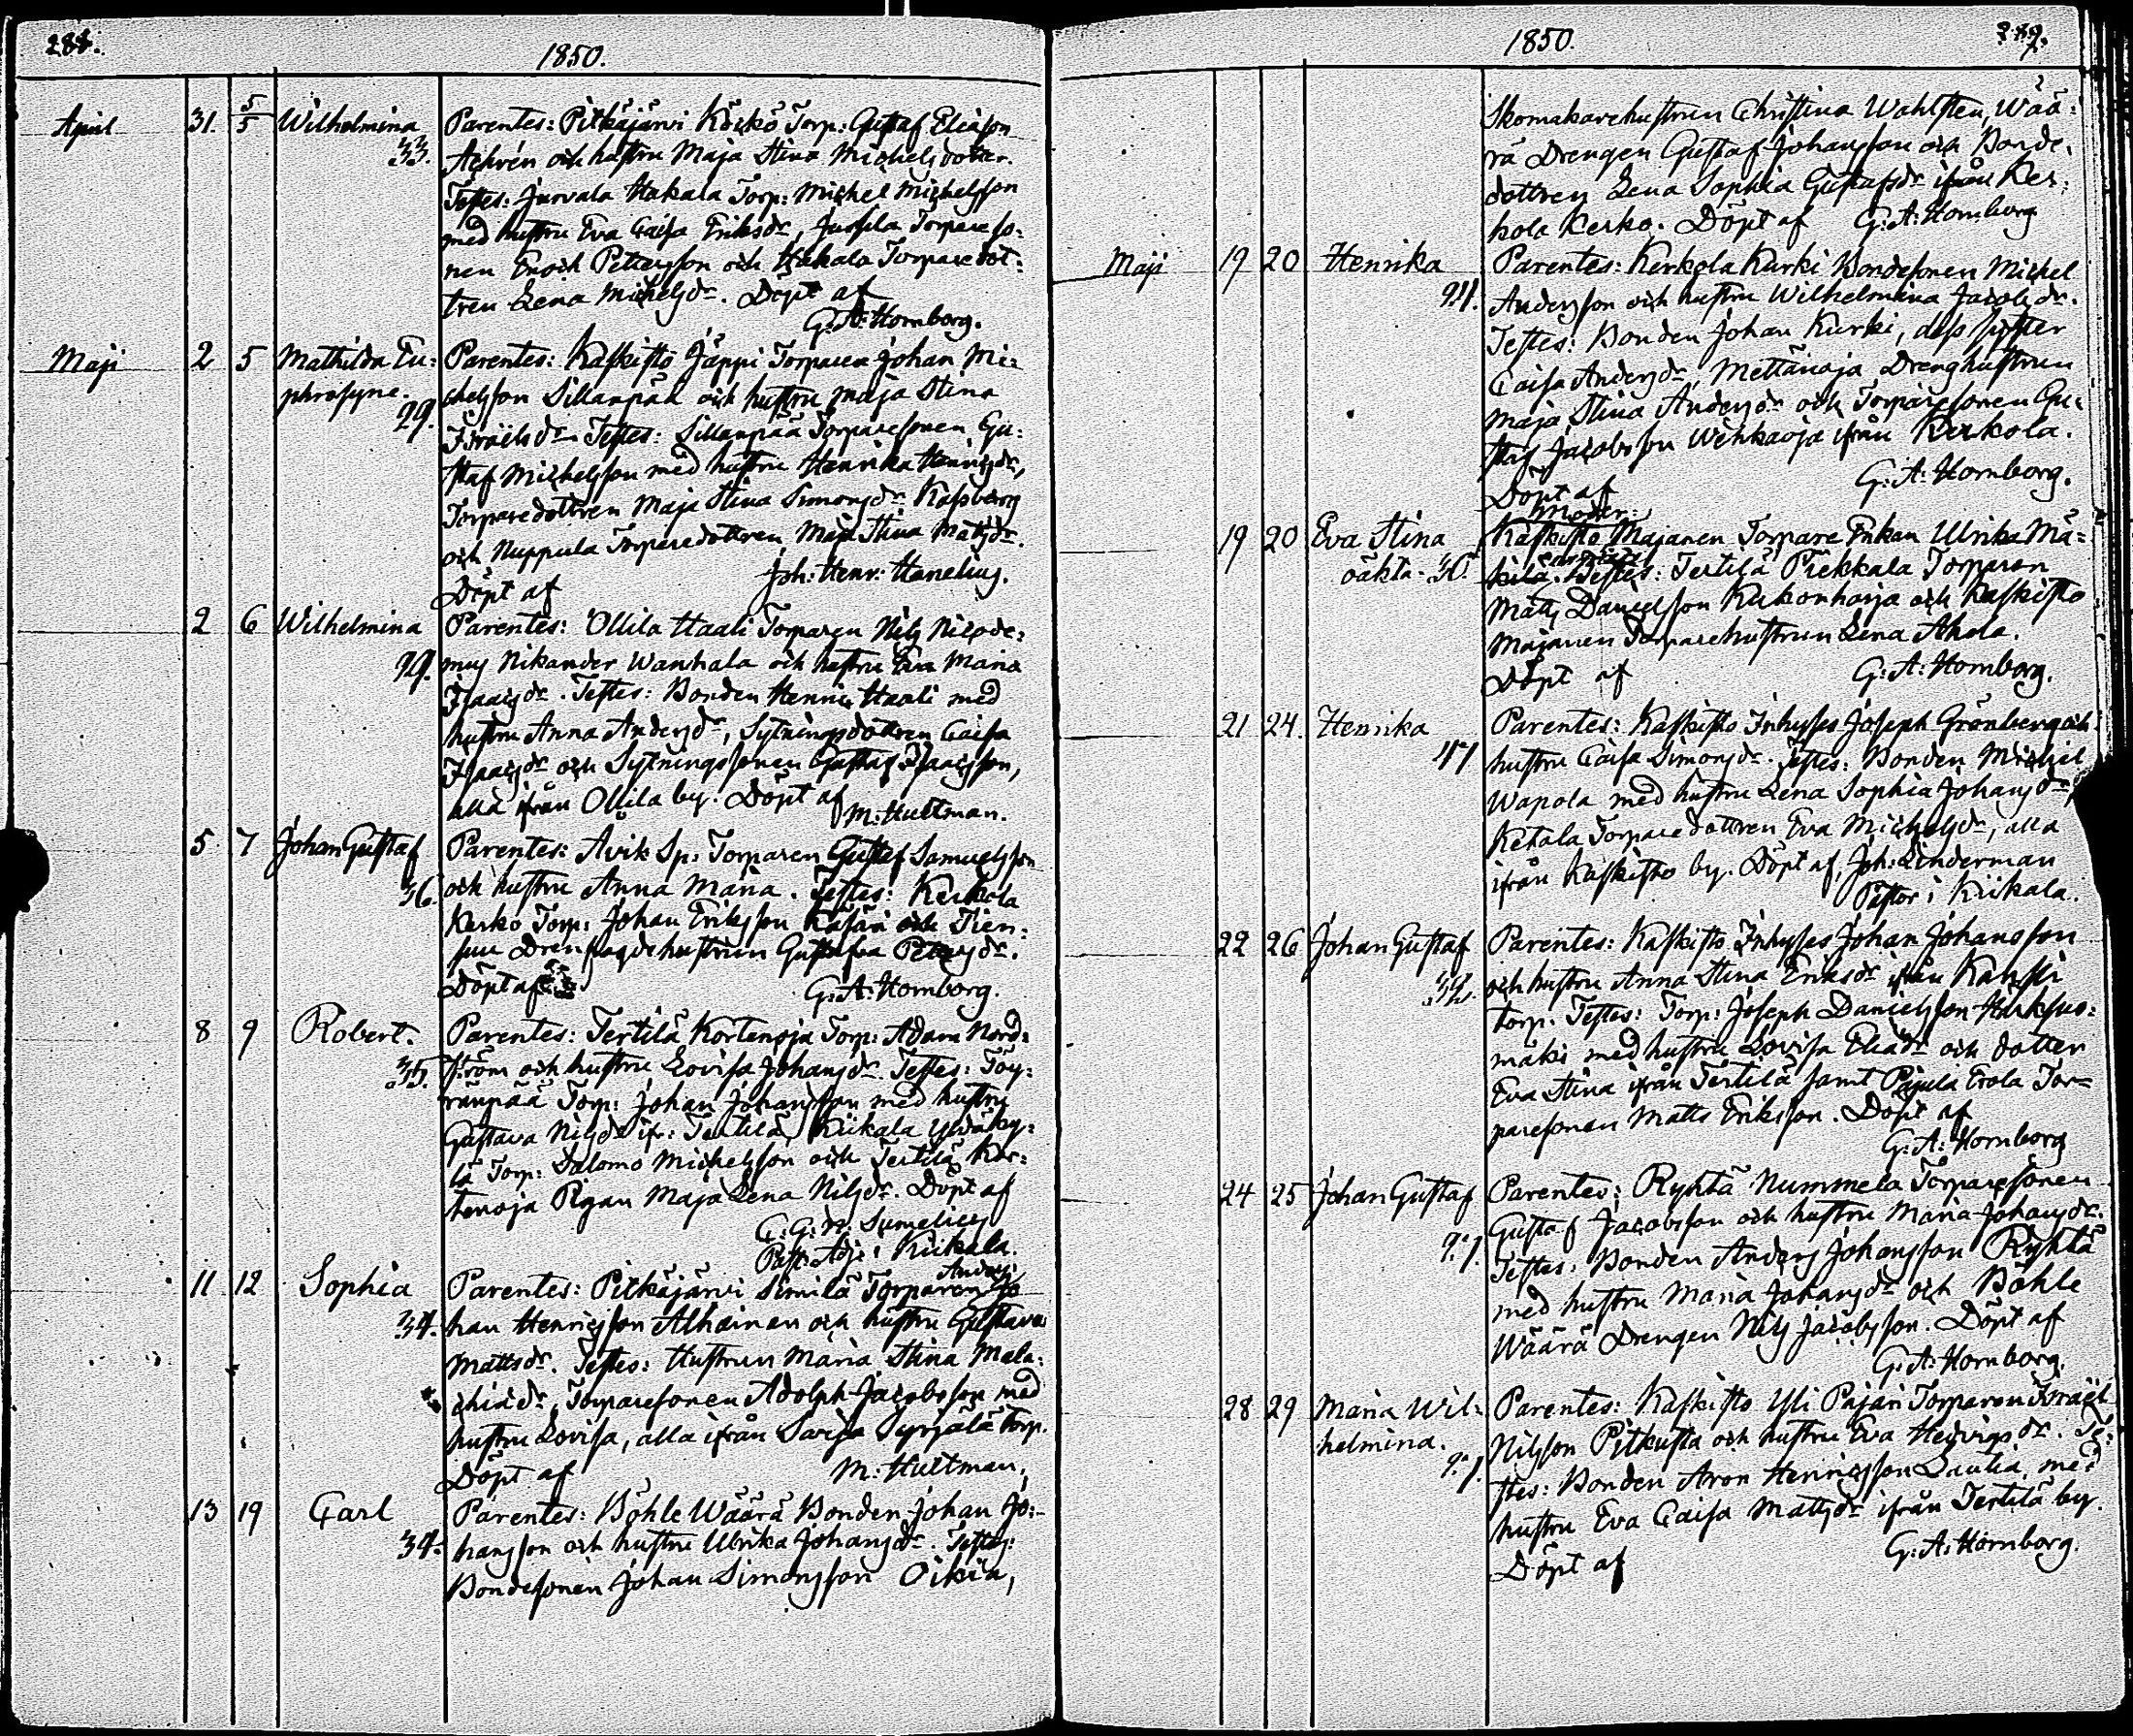 288.
1850.
April 31. 5/5 Wilhelmina 33.
Parentes: Pitkäjärvi Körkö Torp: Gustaf Eliasson
Achrén och hustru Maja Stina Michelsdotter.
Testes: Jurvala Hakala Torp: Michel Michelsson
med hustru Eva Caisa Eriksdr, Jussila Torpareso:
nen Enoch Pettersson och Hakala Torparedot:
tren Lena Michelsdr. Döpt af
G: A: Hornborg.
Maji 2 5 Mathilda Eu:
phrosyne. 29.
Parentes: Kaskisto Jäppi Torparen Johan Mi:
chelsson Sillanpää och hustru Maja Stina
Israelsdr. Testes: Sillanpää Torparesonen Gu:
staf Michelsson med hustru Henrika Henricsdr,
Torparedottren Maja Stina Simonsdr Kassberg
och Nuppula Torparedottren Maja Stina Matsdr.
Döpt af Joh: Henr: Hanelius.
2 6 Wilhelmina 29.
Parentes: Ollila Haali Torparen Nils Nicode:
mus Nikander Wanhala och hustru Eva Maria
Isaacsdr. Testes: Bonden Henric Haali med
hustru Anna Andersdr, Sytningsdottren Caisa
Isaacsdr och Sytningssonen Gustaf Isaacsson,
alla ifrån Ollila by. Döpt af
M: Hultman.
5 7 Johan Gustaf 36.
Parentes: Avik Sp: Torparen Gustaf Samuelsson
och hustru Anna Maria. Testes: Kerkola
Kerko Torp: Johan Eriksson Kasari och Tien:
suu hustrun Gustafva Petersdr.
Döpt af G: A: Hornborg.
8 9 Robert. 35.
Parentes: Tertilä Kortenoja Torp: Adam Nord:
ström och hustru Lovisa Johansdr. Testes: Töy:
ränpää Torp: Johan Johansson med hustru
Gustava Nilsdr ifr: Tertilä, Kiikala Yläky:
lä Torp: Salomo Michelsson och Tertilä Kor:
tenoja Pigan Maja Lena Nilsdr. Döpt af
C: G: W: Sumelius
Past: Adj: i Kiikala.
11 12 Sophia 34.
Anders
Parentes: Pitkäjärvi Simila Torparen Jo
han Henricsson Alhainen och hustru Gustava
Mattsdr. Testes: Hustrun Maria Stina Mala:
chiædr, Torparesonen Adolph Jacobsson med
hustru Lovisa, alla ifrån Sarsa Syrjälä Torp.
Döpt af M: Hultman.
13 19 Carl 34.
Parentes: Böhle Wäärä Bonden Johan Jo:
hansson och hustru Ulrika Johansdr. Testes:
Bondesonen Johan Simonsson Oikia,
1850.
Skomakarehustrun Christina Wahlsten, Wää:
rä Drengen Gustaf Johansson och Bonde:
dottren Lena Sophia Gustafsdr ifrån Ker:
kola Kerko. Döpt af G: A: Hornborg
Maji 19 20 Henrika
Parentes: Kerkola Kurki Bondesonen Michel
Andersson och hustru Wilhelmina Jacobsdr.
Testes: Bonden Johan Kurki, dess syster
Caisa Andersdr, Mettänoja Drenghustrun
Maja Stina Andersdr och Torparesonen Gu:
staf Jacobsson Wehkaoja ifrån Kerkola.
Döpt af G: A: Hornborg.
19 20 Eva Stina
oäkta. 30.
Moder:
Kaskisto Majanen Torpare Enkan Ulrika Mä:
kilä. Testes: Tertilä Prekkala Torparen
Mats Danielsson Kukonharja och Kaskisto
Majanen Torparehustrun Lena Ahola.
Döpt af G: A: Hornborg.
21 24. Henrika 47
Parentes: Kaskisto Inhyses Joseph Grönberg och
hustru Caisa Simonsdr. Testes: Bonden Michel
Wapola med hustru Lena Sophia Johansdr,
Ketala Torparedottren Eva Michelsdr, alla
ifrån Kaskisto by. Döpt af, Joh: Linderman
Pastor i Kiikala.
22 26 Johan Gustaf 32.
Parentes: Kaskisto Inhyses Johan Johansson
och hustru Anna Stina Eriksdr ifrån Kanssi
torp. Testes: Torp: Joseph Danielsson Haksuo:
mäki med hustru Lovisa Eliædr och dotter
Eva Stina ifrån Tertilä samt Pajula Erola Tor:
paresonen Matts Eriksson. Döpt af
G: A: Hornborg
24 25 Johan Gustaf
Parentes: Ryhtä Nummela Torparesonen
Gustaf Jacobsson och hustru Maria Johansdr.
Testes: Bonden Anders Johansson Ryhtä
med hustru Maria Johansdr och Böhle
Wäärä Drengen Nils Jacobsson. Döpt af
G: A: Hornborg.
28 29 Maria Wil:
helmina.
Parentes: Kaskisto Yli Pajari Torparen Israël
Nilsson Pitkusta och hustru Eva Hedvigsdr. Te:
stes: Bonden Aron Henricsson Lautia, med
hustru Eva Caisa Mattsdr ifrån Tertilä by.
Döpt af G: A: Hornborg.